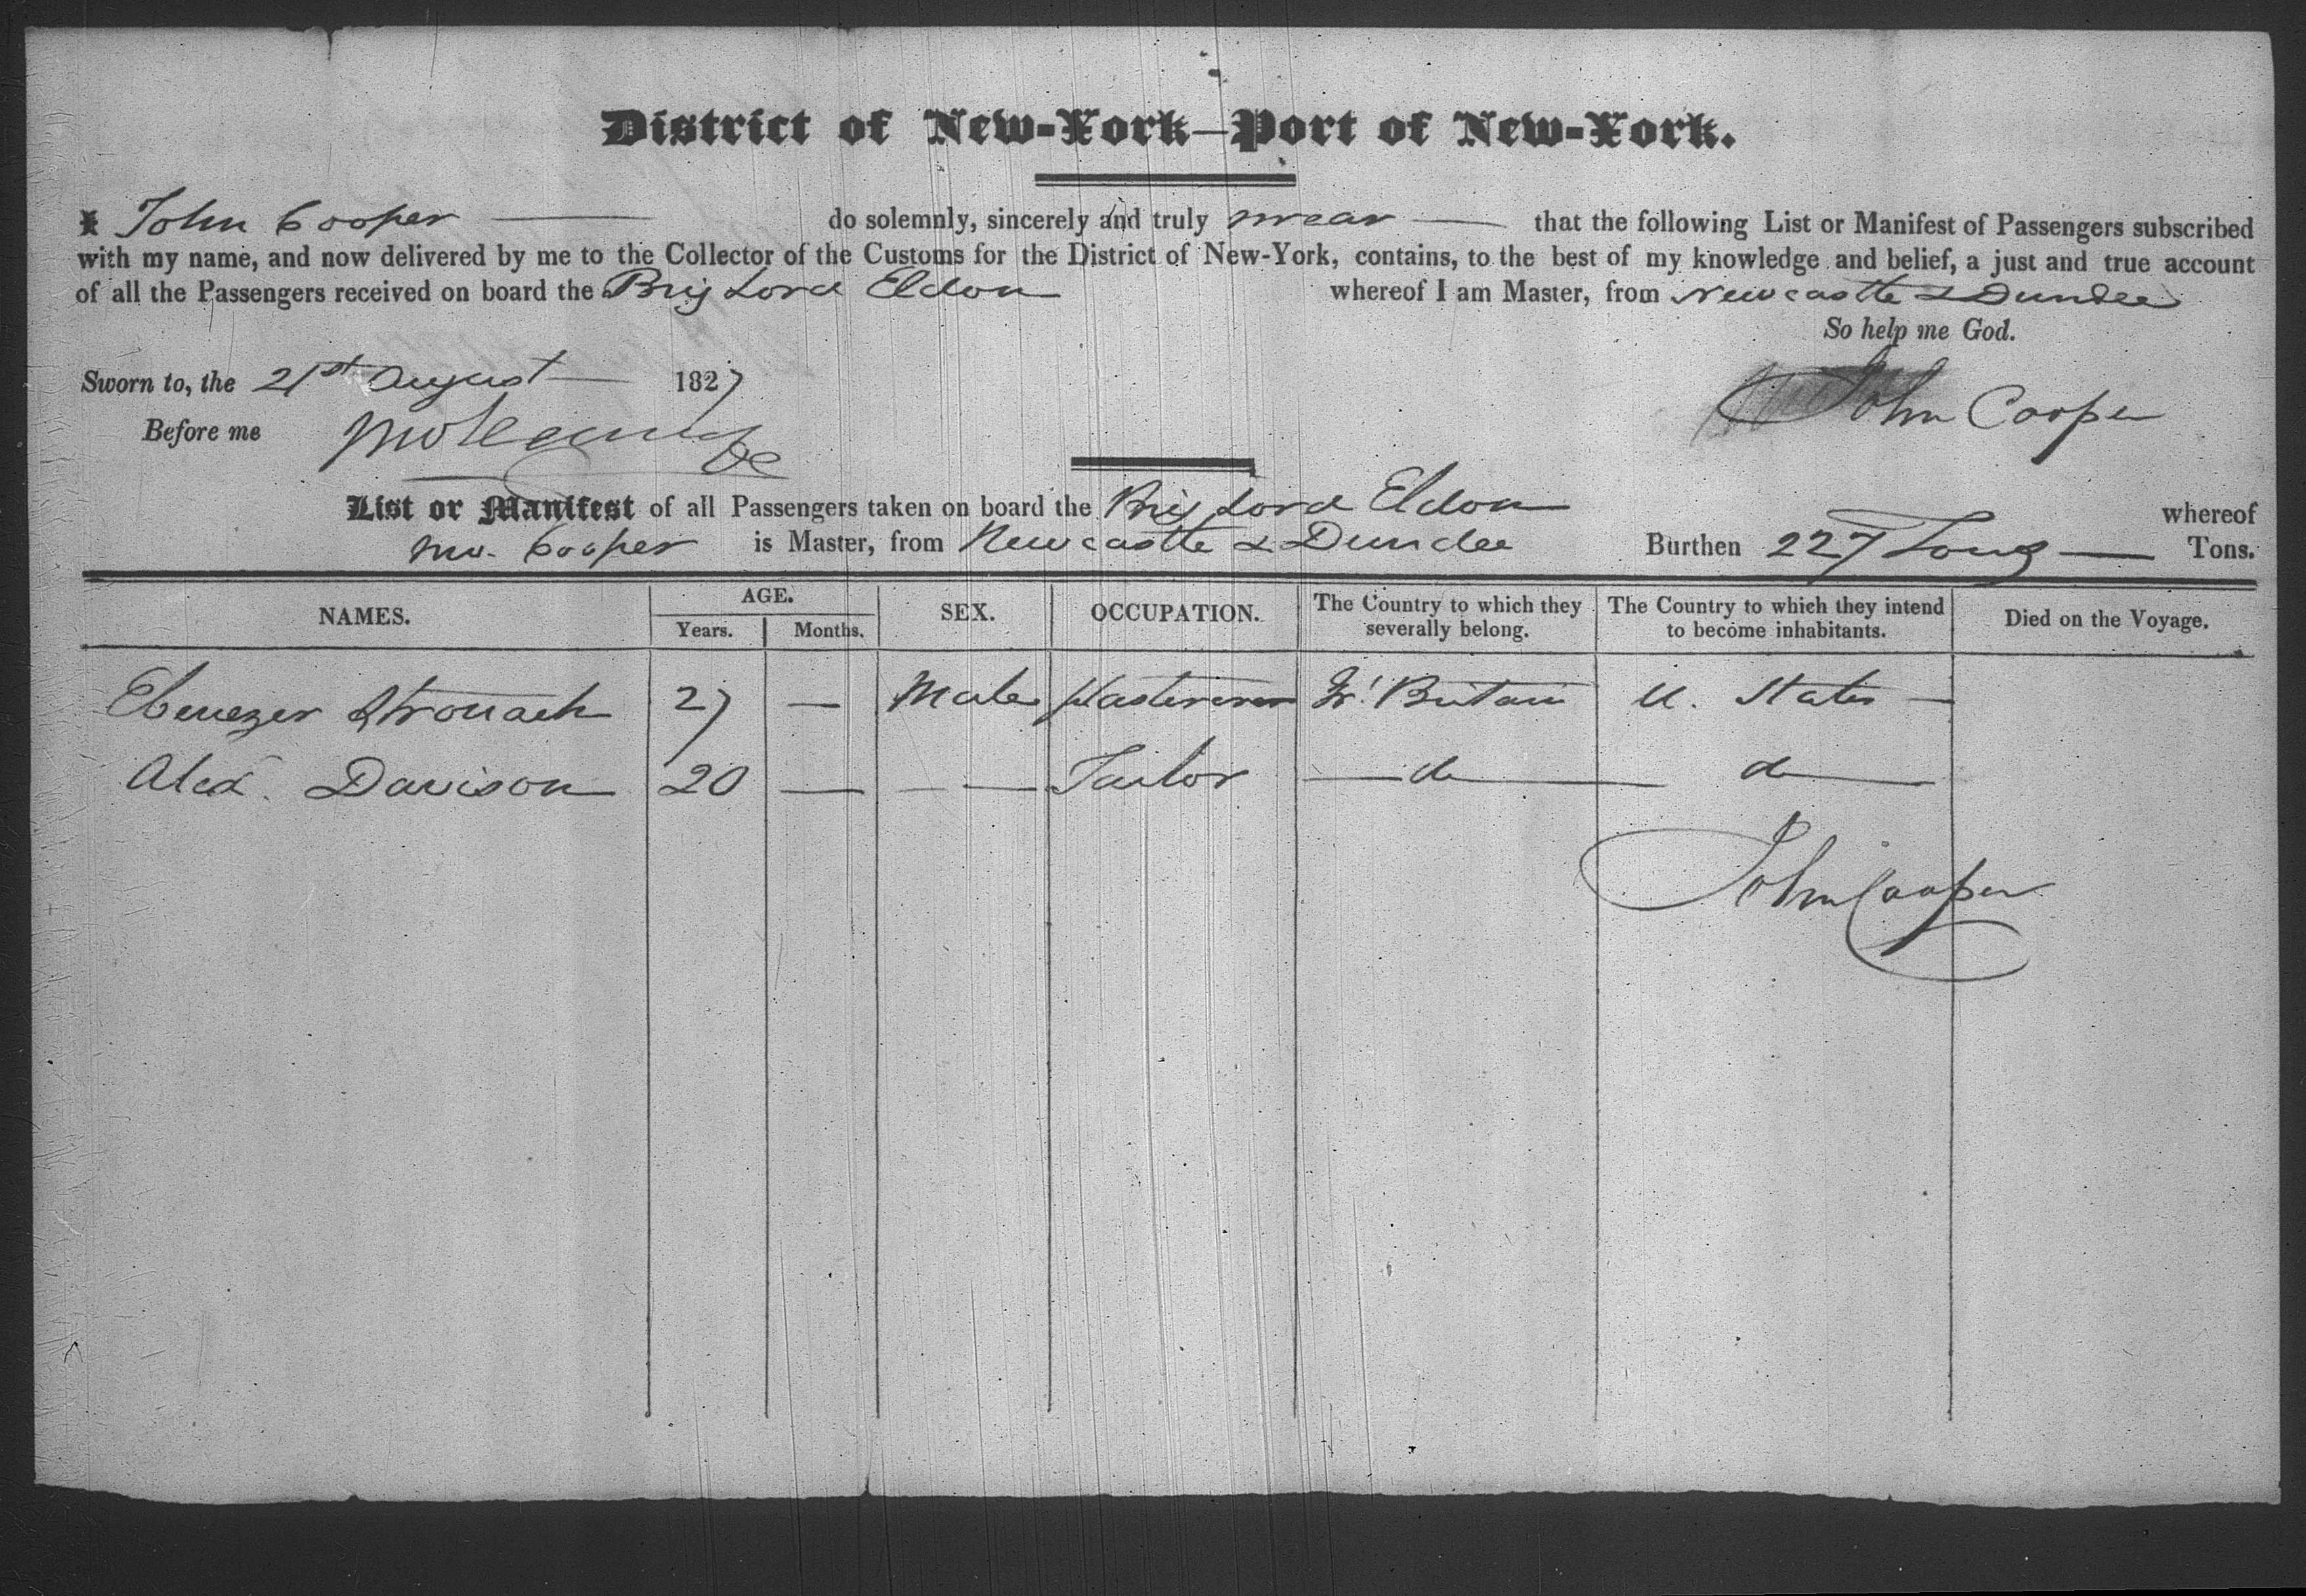 District of New-York—Port of New-York.
I John Cooper — do solemnly, sincerely and truly swear — that the following List or Manifest of Passengers subscribed
with my name, and now delivered by me to the Collector of the Customs for the District of New-York, contains, to the best of my knowledge and belief, a just and true account
of all the Passengers received on board the Brig Lord Eldon whereof I am Master, from Newcastle & Dundee
So help me God.
Sworn to, the 21st August — 1827
John Cooper
Before me
List or Manifest of all Passengers taken on board the Brig Lord Eldon whereof
Cooper is Master, from Newcastle & Dundee Burthen 227 Tons — Tons.
NAMES. AGE. SEX. OCCUPATION. The Country to which they severally belong. The Country to which they intend to become inhabitants. Died on the Voyage.
Years. Months.
Ebenezer Stronach 27 — Male Plasterer Gt Britain U. States —
Alexr. Davison 20 — — — Tailor — do — do —
John Cooper